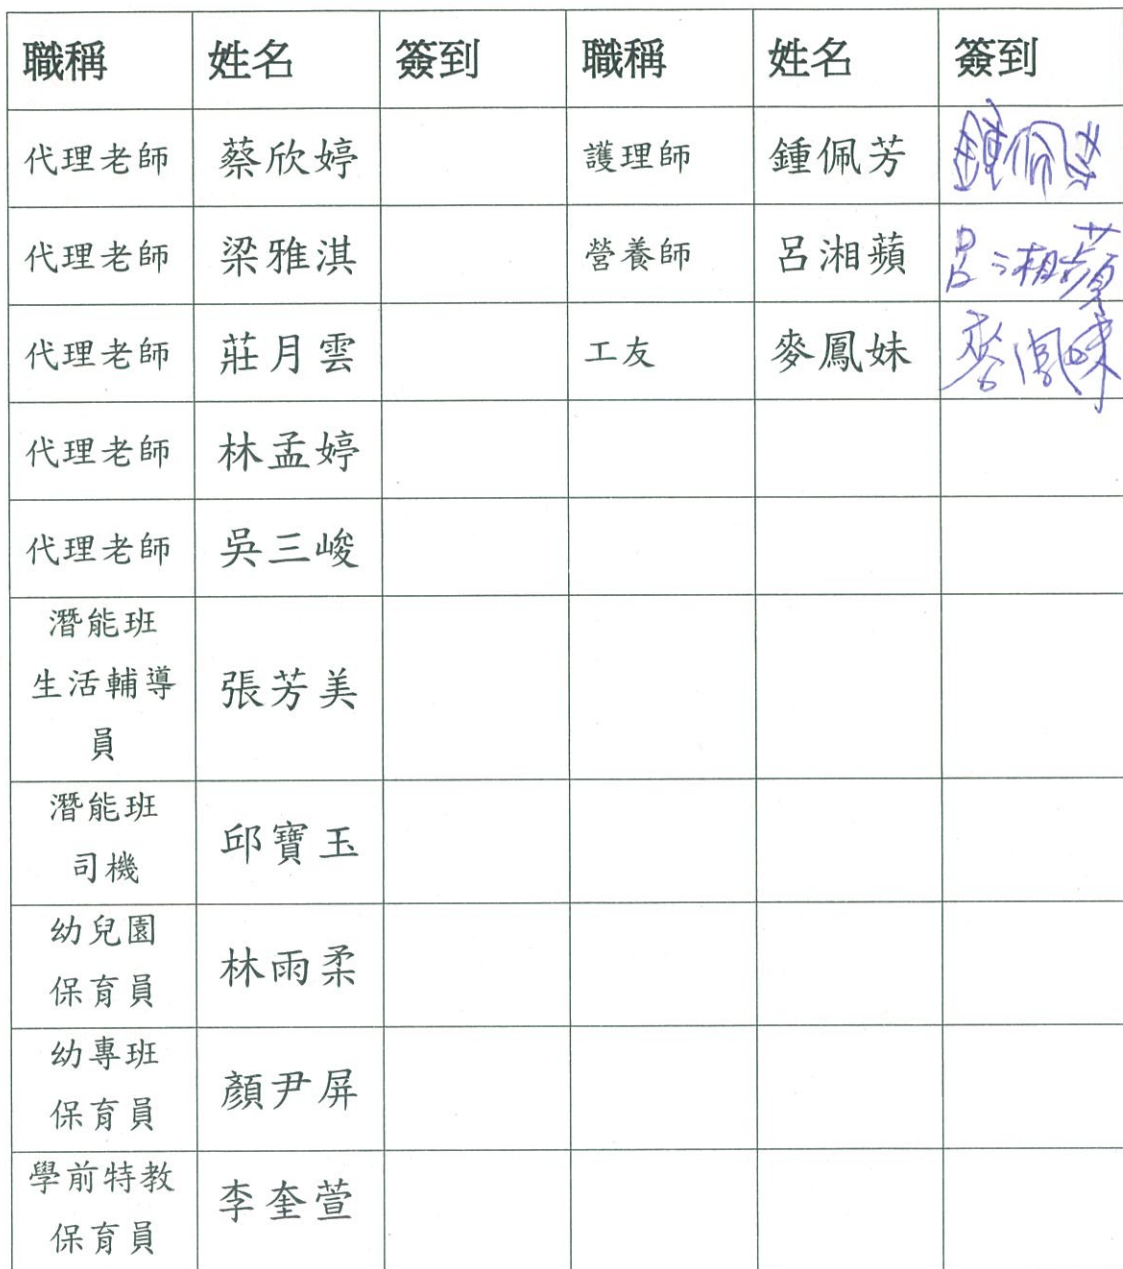 職稱 姓名 簽到 職稱 姓名 簽到
代理老師 蔡欣婷 護理師 鍾佩芳 鍾佩芳
代理老師 梁雅淇 營養師 呂湘蘋 呂湘蘋
代理老師 莊月雲 工友 麥鳳妹 麥鳳妹
代理老師 林孟婷
代理老師 吳三峻
潛能班
生活輔導 張芳美
員
潛能班
司機 邱寶玉
幼兒園
保育員 林雨柔
幼專班
保育員 顏尹屏
學前特教
保育員 李奎萱